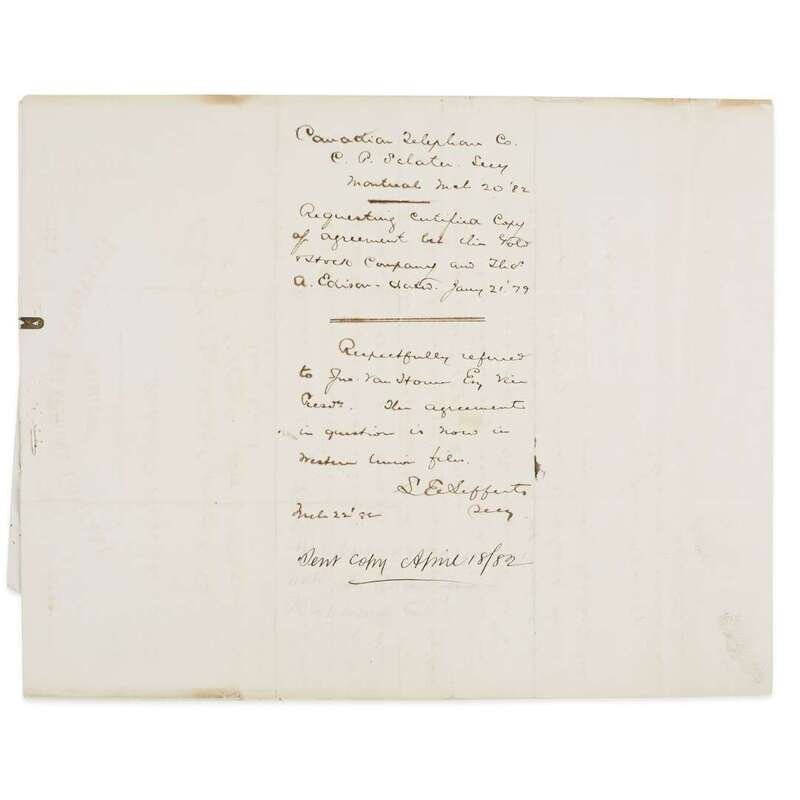 Canadian Telephone Co.
C. P. Sclater. Secy
Montreal Mch 20 '82
Requesting Certified Copy
of agreement bet this Gold
& Stock Company and Thos
A. Edison - dated. Jany 21 '79
Respectfully referred
to Jno. Van Horne Esq Vice
Presdt. The agreement
in question is now in
Western Union files.
Secy.
Mch 22' 82
Sent Copy April 18/82